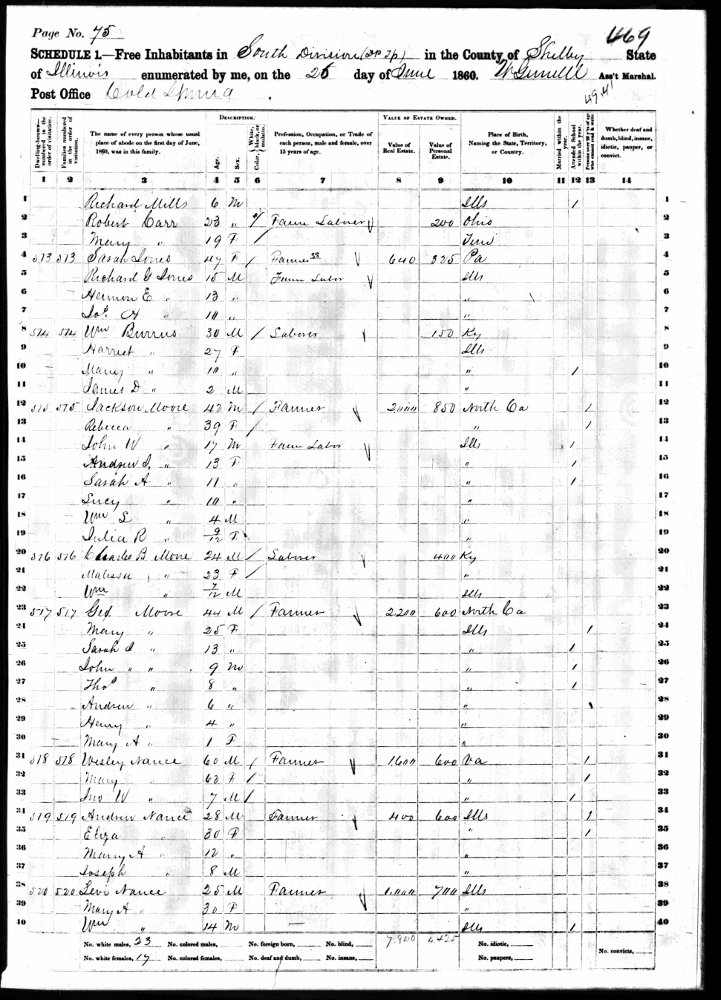 Page No. 75
469
SCHEDULE 1.—Free Inhabitants in South Division in the County of Shelby State
of Illinois enumerated by me, on the 25 day of June 1860. Ass't Marshal.
Post Office Cold Spring
49.41
Dwelling-houses—numbered in the order of visitation. Families numbered in the order of visitation. The name of every person whose usual place of abode on the first day of June, 1860, was in this family. DESCRIPTION. Age. Sex. Color, White, black, or mulatto. Profession, Occupation, or Trade of each person, male and female, over 15 years of age. VALUE OF ESTATE OWNED. Value of Real Estate. Value of Personal Estate. Place of Birth, Naming the State, Territory, or Country. Married within the year. Attended School within the year. Whether deaf and dumb, blind, insane, idiotic, pauper, or convict.
1 2 3 4 5 6 7 8 9 10 11 12 13 14
1 Richard Mills 6 M Ills / 1
2 Robert Carr 23 " Farm Laborer 200 Ohio 2
3 Mary " 19 F / 3
4 513 513 Sarah Jones 47 F / Farmer 640 325 Pa 4
5 Richard G Jones 15 M Farm Labor Ills 5
6 Hermon E " 13 " " 6
7 Jos. H " 10 " " 7
8 514 514 Wm Burrus 30 M / Laborer 150 Ky 8
9 Harriet " 27 F Ills 9
10 Mary " 10 " " / 10
11 James D " 2 M " 11
12 515 515 Jackson Moore 42 M / Farmer 2,000 850 North Ca / 12
13 Rebecca " 39 F / " / 13
14 John W " 17 M Farm Labor Ills / 14
15 Andrew J. " 13 F " / 15
16 Sarah A " 11 " " / 16
17 Lucy " 10 " " 17
18 Wm S " 4 M " 18
19 Julia R " 9/12 F " 19
20 516 516 Charles B Moore 24 M / Laborer 400 Ky 20
21 Malissa " 23 F / " 21
22 Wm " 7/12 M Ills 22
23 517 517 Geo. Moore 44 M / Farmer 2200 600 North Ca 23
24 Mary " 25 F Ills / 24
25 Sarah J " 13 " " / 25
26 John " " 9 M " / 26
27 Thos " 8 " " / 27
28 Andrew " 6 " " 28
29 Henry " 4 " " 29
30 Mary A " 1 F " 30
31 518 518 Wesley Nance 60 M / Farmer 1600 600 Va / 31
32 Mary " 62 F / " / 32
33 Jno W " 7 M / " / 33
34 519 519 Andrew Nance 28 M Farmer 400 600 Ills / 34
35 Eliza " 30 F " / 35
36 Mary A " 12 " " 36
37 Joseph " 8 M " 37
38 520 520 Levi Nance 25 M Farmer 1.000 700 Ills 38
39 Mary A " 30 F " 39
40 Wm " 14 M — Ills / 40
No. white males, 23 No. colored males, No. foreign born, No. blind, 7,940 4425 No. idiotic,
No. white females, 17 No. colored females, No. deaf and dumb, No. insane, No. paupers, No. convicts,